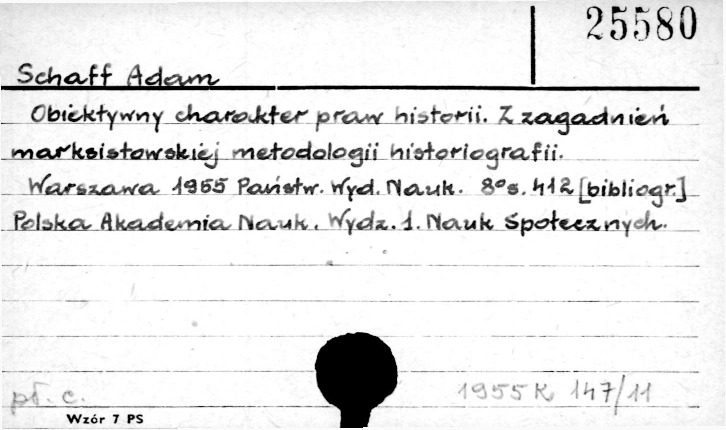 25580
Schaff Adam
Obiektywny charakter praw historii. Z zagadnień
marksistowskiej metodologii historiografii.
Warszawa 1955 Państw. Wyd. Nauk. 8° s. 412 [bibliogr.]
Polska Akademia Nauk. Wydz. 1. Nauk Społecznych.
pł. c.
1955 K 147/11
Wzór 7 PS